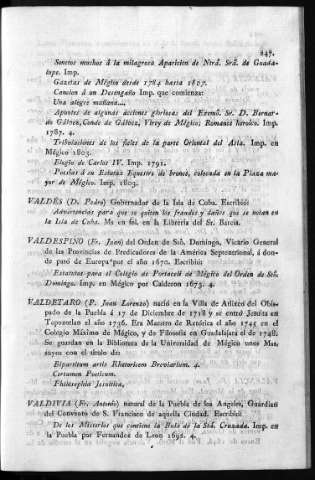 247.
Sonetos muchos á la milagrosa Aparicion de Ntrâ. Srâ. de Guadalupe. Imp.
Gazetas de Mégico desde 1784 hasta 1807.
Cancion á un Desengaño Imp. que comienza:
Una alegre mañana...
Apuntes de algunas acciones gloriosas del Exmô. Sr. D. Bernardo de Gálvez, Conde de Gálvez, Virey de Mégico; Romance heroico. Imp.
1787. 4.
Tribulaciones de los fieles de la parte Oriental del Asia. Imp. en
Mégico 1803.
Elogio de Carlos IV. Imp. 1791.
Poesias á su Estatua Equestre de bronce, colocada en la Plaza mayor de Mégico. Imp. 1803.
VALDÉS (D. Pedro) Gobernador de la Isla de Cuba. Escribió:
Advertencias para que se quiten los fraudes y daños que se notan en
la Isla de Cuba. Ms en fol. en la Librería del Sr. Barcia.
VALDESPINO (Fr. Juan) del Orden de Stô. Domingo, Vicario General
de las Provincias de Predicadores de la América Septentrional, á donde pasó de Europa por el año 1670. Escribió:
Estatutos para el Colegio de Portaceli de Mégico del Orden de Stô.
Domingo. Imp. en Mégico por Calderon 1673. 4.
VALDETARO (P. Juan Lorenzo) nació en la Villa de Atlixco del Obispado de la Puebla á 17 de Diciembre de 1718 y se entró Jesuita en
Tepozotlan el año 1736. Era Maestro de Retórica el año 1745 en el
Colegio Máximo de Mégico, y de Filosofía en Guadalajara el de 1748.
Se guardan en la Biblioteca de la Universidad de Mégico unos Manuscritos suyos con el título de:
Bipartitum artis Rhetoricæ Breviarium. 4.
Certamen Poeticum.
Philosophia Jesuitica.
VALDIVIA (Fr. Antonio) natural de la Puebla de los Angeles, Guardian
del Convento de S. Francisco de aquella Ciudad. Escribió:
De los Misterios que contiene la Bula de la Stâ. Cruzada. Imp. en
la Puebla por Fernandez de Leon 1692. 4.